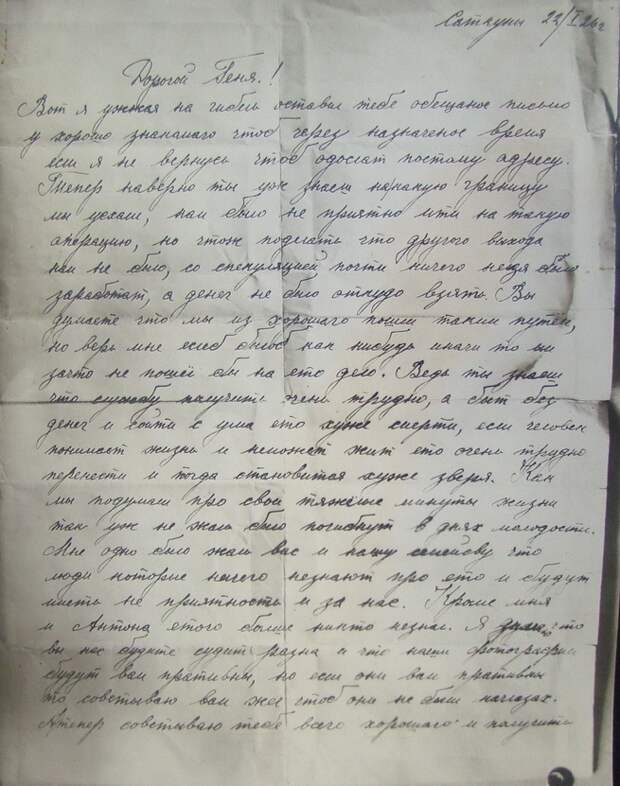 Сатауны 22/I 26 г
Дорогой Геня.!
Вот я уежжая на гибель оставил тебе обещаное письмо
у хорошо знакомаго чтоб через назначеное время
если я не вернусь чтоб одослат постому адресу.
Тепер наверно ты уж знаеш накакую границу
мы уехали, нам было не приятно итти на такую
операцию, но чтож поделать что другого выхода
нам не было, со спекуляцией почти ничего незя было
заработат, а денег не было откудо взять. Вы
думаете что мы из хорошаго пошли таким путем,
но верь мне еслеб былоб как нибудь иначи то ни
зачто не пошел бы на ето дело. Ведь ты знаеш
что службу получить очень трудно, а быт без
денег и сойти с ума ето хуже смерти, если человек
понимает жизнь и неможет жит ето очень трудно
перенести и тогда становится хуже зверя. Как
мы подумали про свои тяжелые минуты жизни
так уж не жаль было погибнут в днях молодости.
Мне одно было жаль вас и нашу семейсву что
люди которые ничего незнают про ето и будут
иметь не приятность и за нас. Кроме мня
и Антона етого больше никто незнал. Я думаю, что
вы нас будите судит разна и что наши фотографии
будут вам пративны, но если они вам пративны
то советываю вам жеч чтоб они не были наглазах.
Атепер советываю тебе всего хорошаго и получить